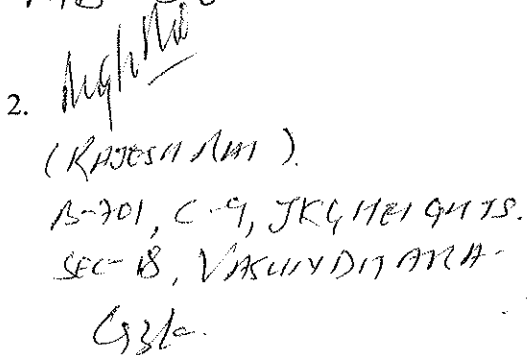 2.
(RAJESH RAI).
B-701, C-9, JKG HEIGHTS.
SEC-18, VASUNDHARA-
GZB.